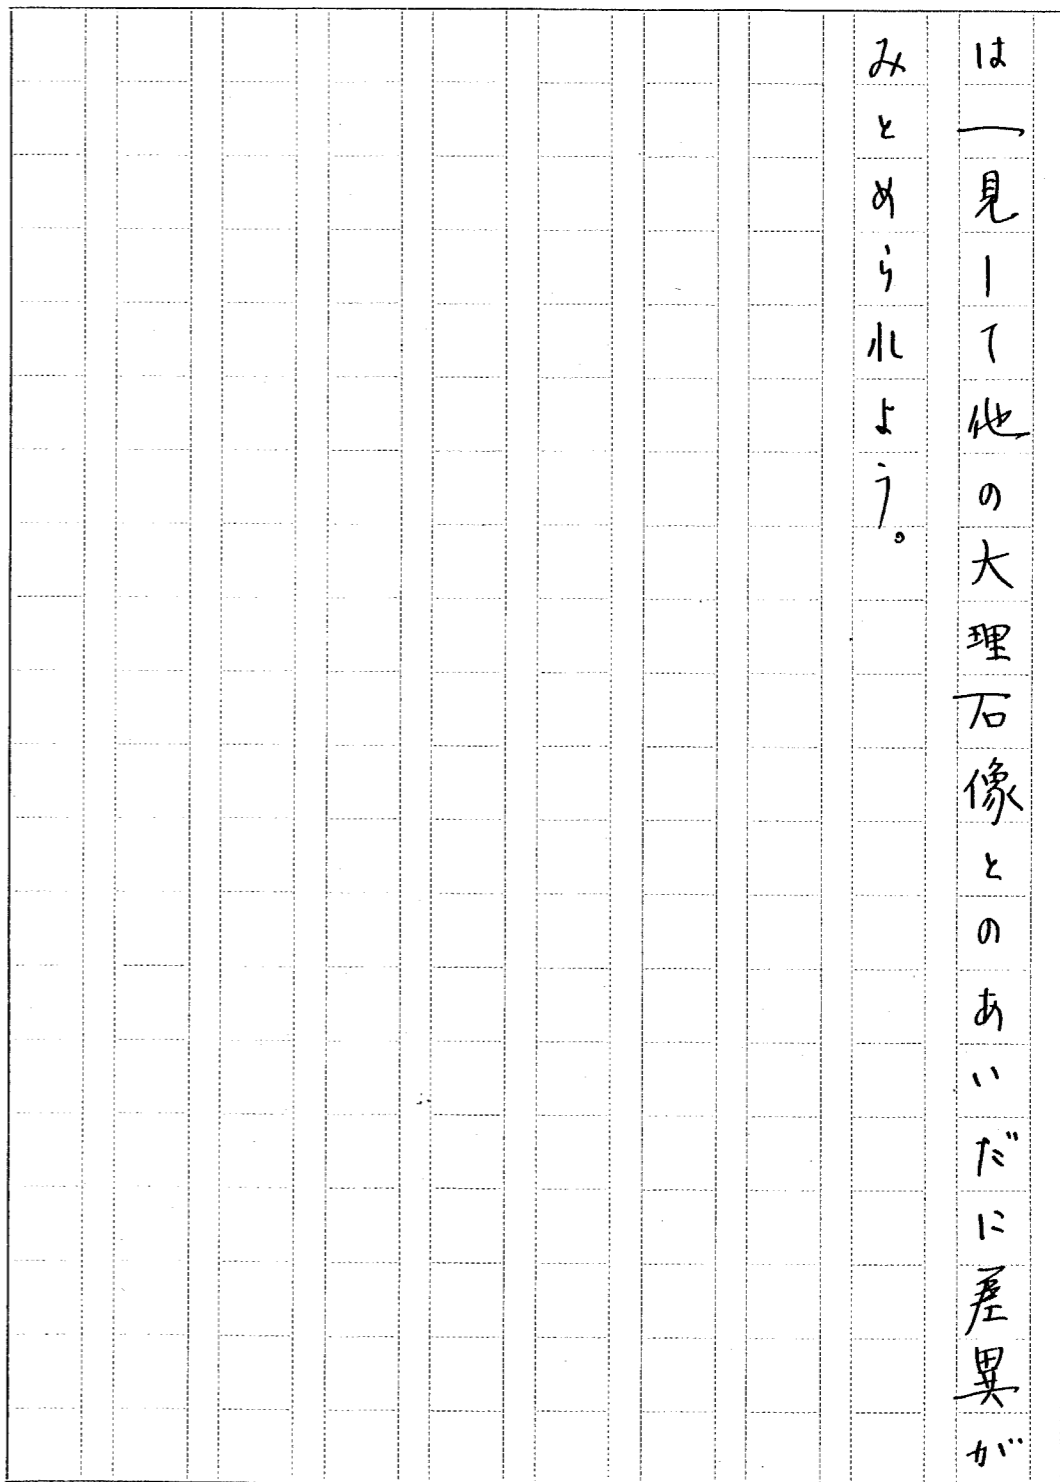 は一見して他の大理石像とのあいだに差異が
みとめられよう。